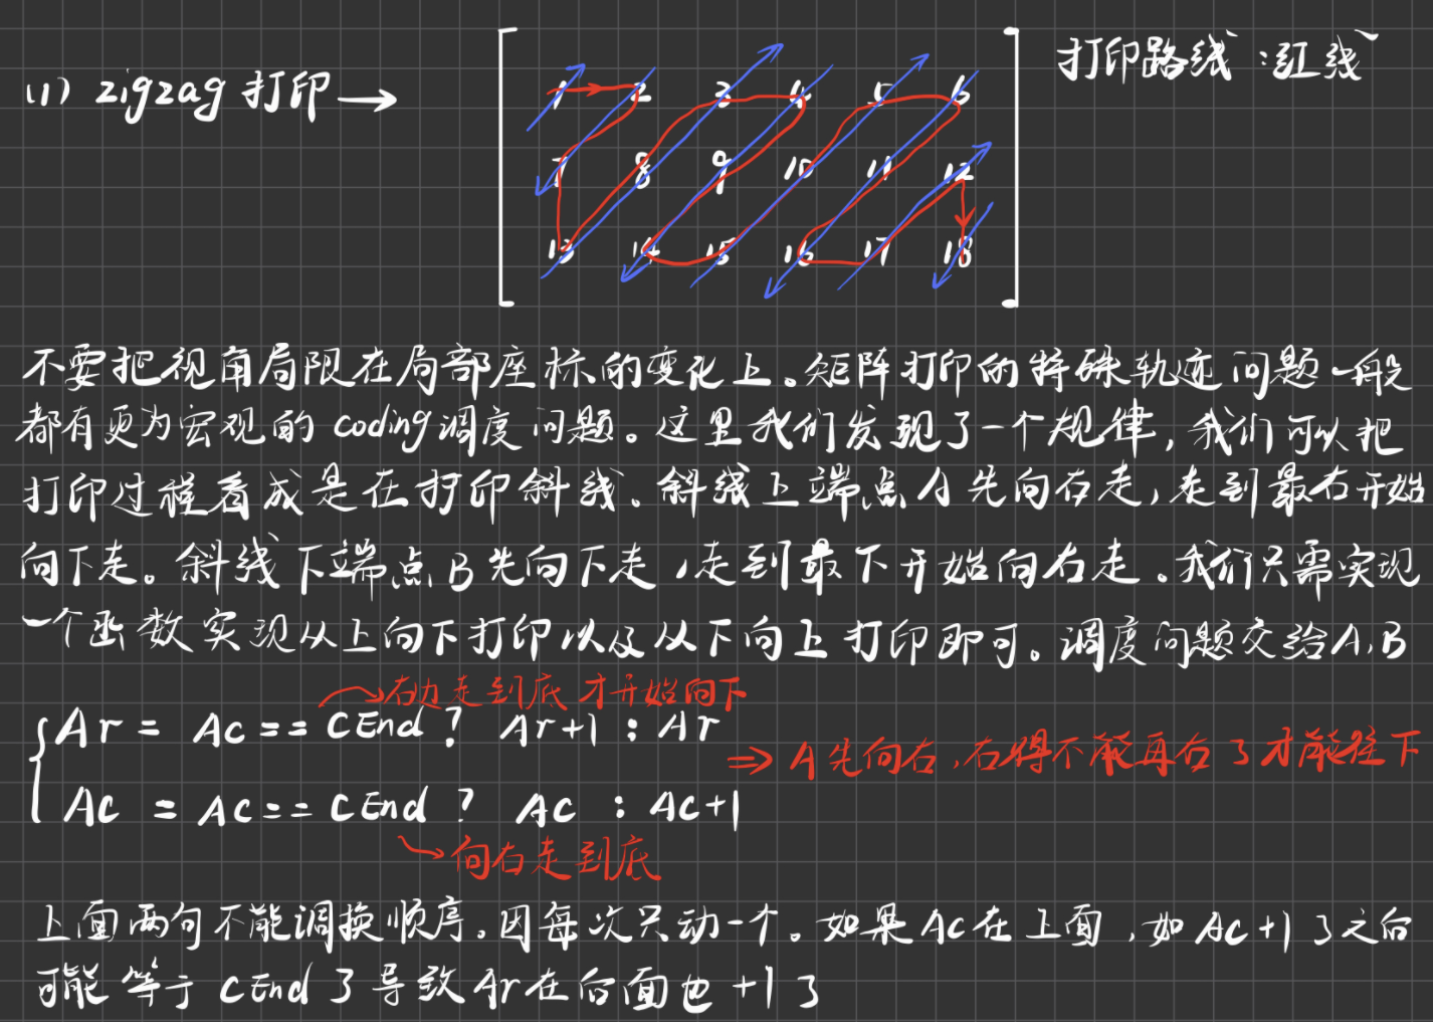 (1) zigzag 打印
打印路线:红线
1 2 3 4 5 6
7 8 9 10 11 12
13 14 15 16 17 18
不要把视角局限在局部座标的变化上。矩阵打印的特殊轨迹问题一般
都有更为宏观的 coding 调度问题。这里我们发现了一个规律,我们可以把
打印过程看成是在打印斜线。斜线上端点A先向右走,走到最右开始
向下走。斜线下端点B先向下走,走到最下开始向右走。我们只需实现
一个函数实现从上向下打印以及从下向上打印即可。调度问题交给A,B
右边走到底才开始向下
Ar = Ac == CEnd ? Ar+1 : Ar
⇒ A先向右,右得不能再右了才能往下
Ac = Ac == CEnd ? Ac : Ac+1
向右走到底
上面两句不能调换顺序。因每次只动一个。如果Ac在上面,如Ac+1了之后
可能等于CEnd了导致Ar在后面也+1了